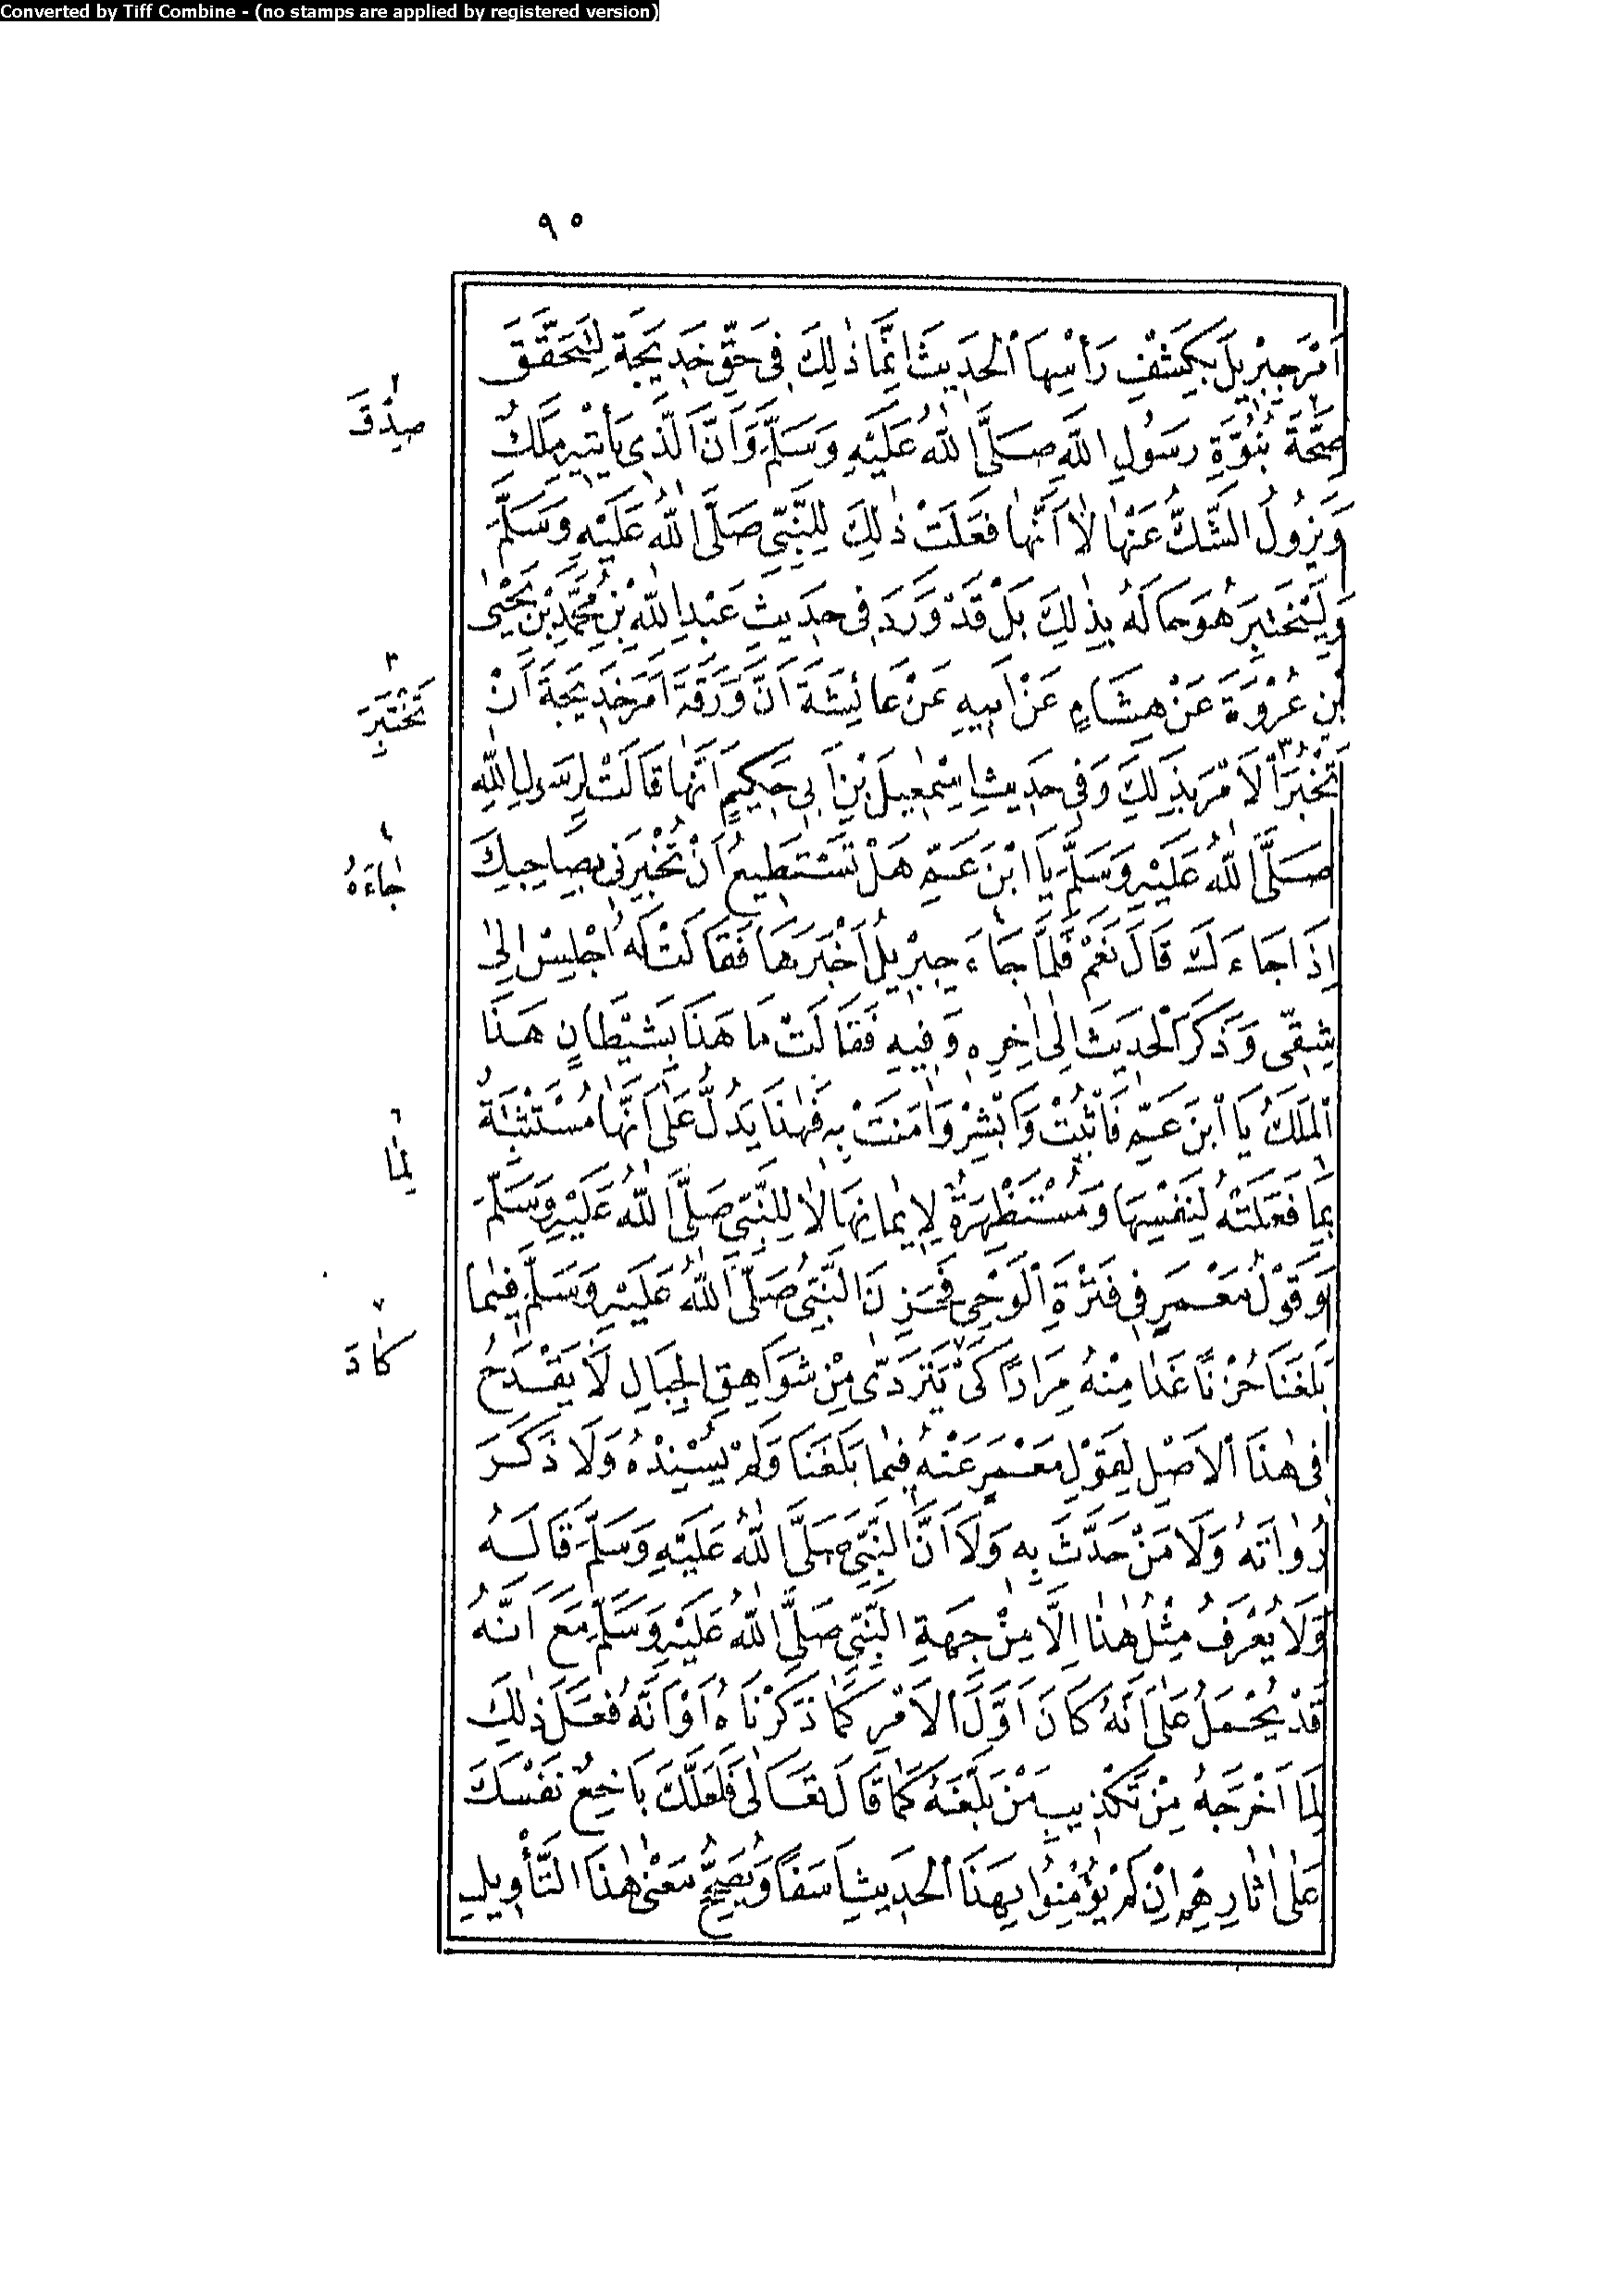 Converted by Tiff Combine - (no stamps are applied by registered version)
٩٥
اَمْرَ جِبْرِيلَ بِكَشْفِ رَأْسِهَا الْحَدِيثَ اِنَّمَا ذٰلِكَ فِى حَقِّ خَدِيجَةَ لِتَتَحَقَّقَ
صِحَّةَ نُبُوَّةِ رَسُولِ اللّٰهِ صَلَّى اللّٰهُ عَلَيْهِ وَسَلَّمَ وَاَنَّ الَّذِى يَأْتِيهِ مَلَكٌ
وَيَزُولَ الشَّكُّ عَنْهَا لَا اَنَّهَا فَعَلَتْ ذٰلِكَ لِلنَّبِىِّ صَلَّى اللّٰهُ عَلَيْهِ وَسَلَّمَ
وَلِيَخْتَبِرَ هُوَ حَالَهُ بِذٰلِكَ بَلْ قَدْ وَرَدَ فِى حَدِيثِ عَبْدِ اللّٰهِ بْنِ مُحَمَّدِ بْنِ يَحْيٰى
بْنِ عُرْوَةَ عَنْ هِشَامٍ عَنْ اَبِيهِ عَنْ عَائِشَةَ اَنَّ وَرَقَةَ اَمَرَ خَدِيجَةَ اَنْ
تَخْبُرَ الْاَمْرَ بِذٰلِكَ وَفِى حَدِيثِ اِسْمٰعِيلَ بْنِ اَبِى حَكِيمٍ اَنَّهَا قَالَتْ لِرَسُولِ اللّٰهِ
صَلَّى اللّٰهُ عَلَيْهِ وَسَلَّمَ يَا ابْنَ عَمِّ هَلْ تَسْتَطِيعُ اَنْ تُخْبِرَنِى بِصَاحِبِكَ
اِذَا جَاءَكَ قَالَ نَعَمْ فَلَمَّا جَاءَ جِبْرِيلُ اَخْبَرَهَا فَقَالَتْ لَهُ اجْلِسْ اِلٰى
شِقِّى وَذَكَرَ الْحَدِيثَ اِلٰى اٰخِرِهِ وَفِيهِ فَقَالَتْ مَا هَذَا بِشَيْطَانٍ هَذَا
الْمَلَكُ يَا ابْنَ عَمِّ فَاثْبُتْ وَاَبْشِرْ وَاٰمَنَتْ بِهِ فَهٰذَا يَدُلُّ عَلٰى اَنَّهَا مُسْتَثْبِتَةٌ
بِمَا فَعَلَتْهُ لِنَفْسِهَا وَمُسْتَظْهِرَةٌ لِاِيمَانِهَا لَا لِلنَّبِىِّ صَلَّى اللّٰهُ عَلَيْهِ وَسَلَّمَ
وَقَوْلُ مَعْمَرٍ فِى فَتْرَةِ الْوَحْىِ فَحَزِنَ النَّبِىُّ صَلَّى اللّٰهُ عَلَيْهِ وَسَلَّمَ فِيمَا
بَلَغَنَا حُزْنًا غَدَا مِنْهُ مِرَارًا كَىْ يَتَرَدّٰى مِنْ شَوَاهِقِ الْجِبَالِ لَا يَقْدَحُ
فِى هٰذَا الْاَصْلِ لِقَوْلِ مَعْمَرٍ عَنْهُ فِيمَا بَلَغَنَا وَلَمْ يُسْنِدْهُ وَلَا ذَكَرَ
رُوَاتَهُ وَلَا مَنْ حَدَّثَ بِهِ وَلَا اَنَّ النَّبِىَّ صَلَّى اللّٰهُ عَلَيْهِ وَسَلَّمَ قَالَهُ
وَلَا يُعْرَفُ مِثْلُ هٰذَا اِلَّا مِنْ جِهَةِ النَّبِىِّ صَلَّى اللّٰهُ عَلَيْهِ وَسَلَّمَ مَعَ اَنَّهُ
قَدْ يُحْمَلُ عَلٰى اَنَّهُ كَانَ اَوَّلَ الْاَمْرِ كَمَا ذَكَرْنَاهُ اَوْ اَنَّهُ فَعَلَ ذٰلِكَ
لِمَا اَخْرَجَهُ مِنْ تَكْذِيبِ مَنْ بَلَّغَهُ كَمَا قَالَ تَعَالٰى فَلَعَلَّكَ بَاخِعٌ نَفْسَكَ
عَلٰى اٰثَارِهِمْ اِنْ لَمْ يُؤْمِنُوا بِهَذَا الْحَدِيثِ اَسَفًا وَيُصَحِّحُ مَعْنٰى هٰذَا التَّأْوِيلِ
٢
صِدْقَ
٣
تَخْتَبِرَ
٤
جَاءَهُ
٦
لِمَا
٧
كَادَ